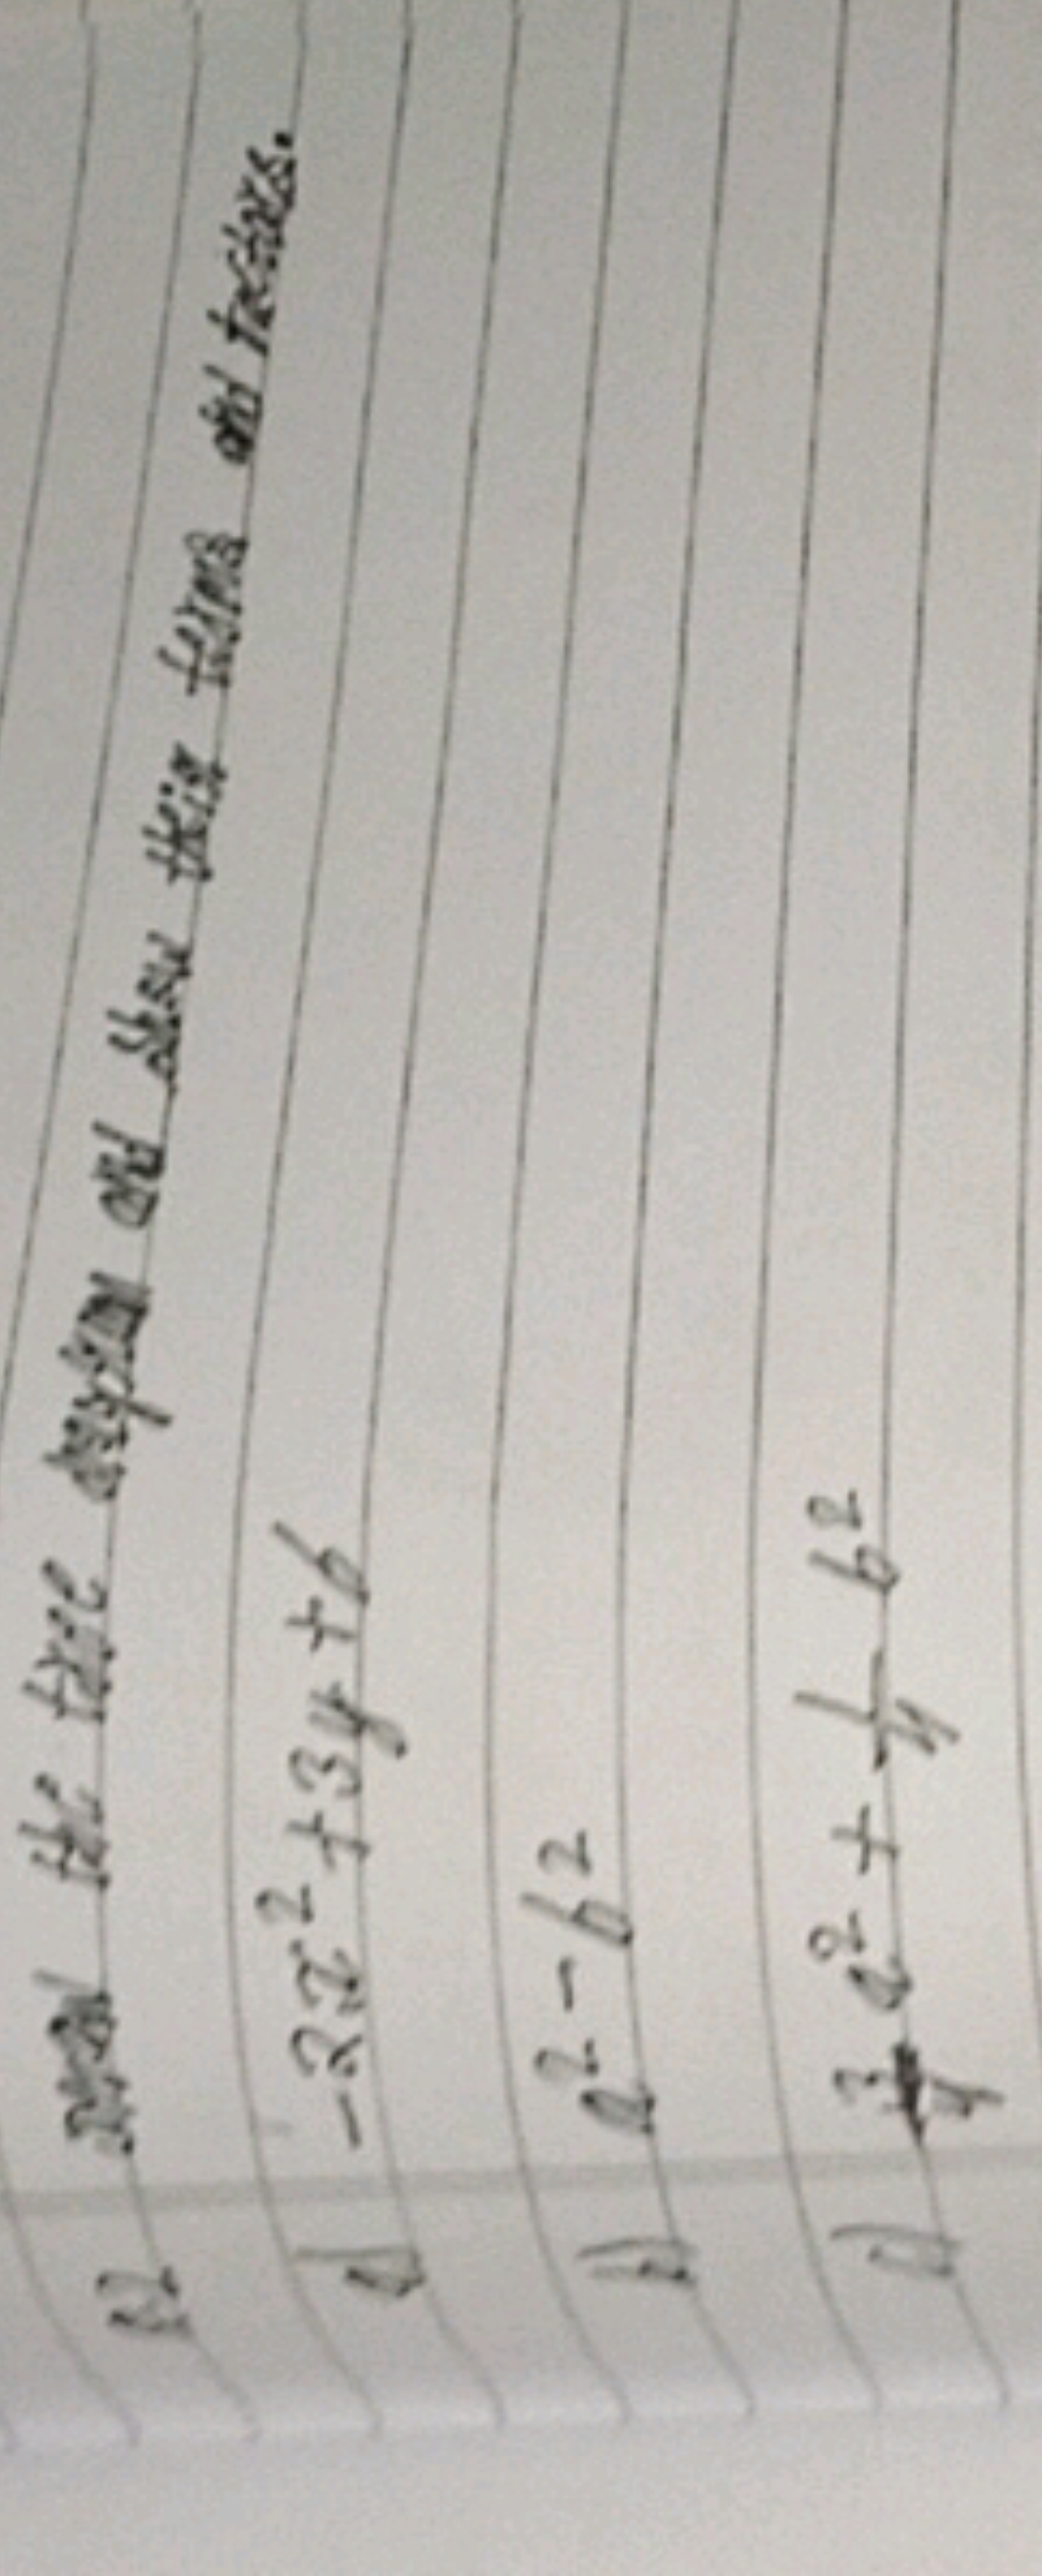 the tree diagram and show their terms and factors.
a) -2x² + 3y + 6
b) a² - b²
c) 3/4 a² + 1/4 b²